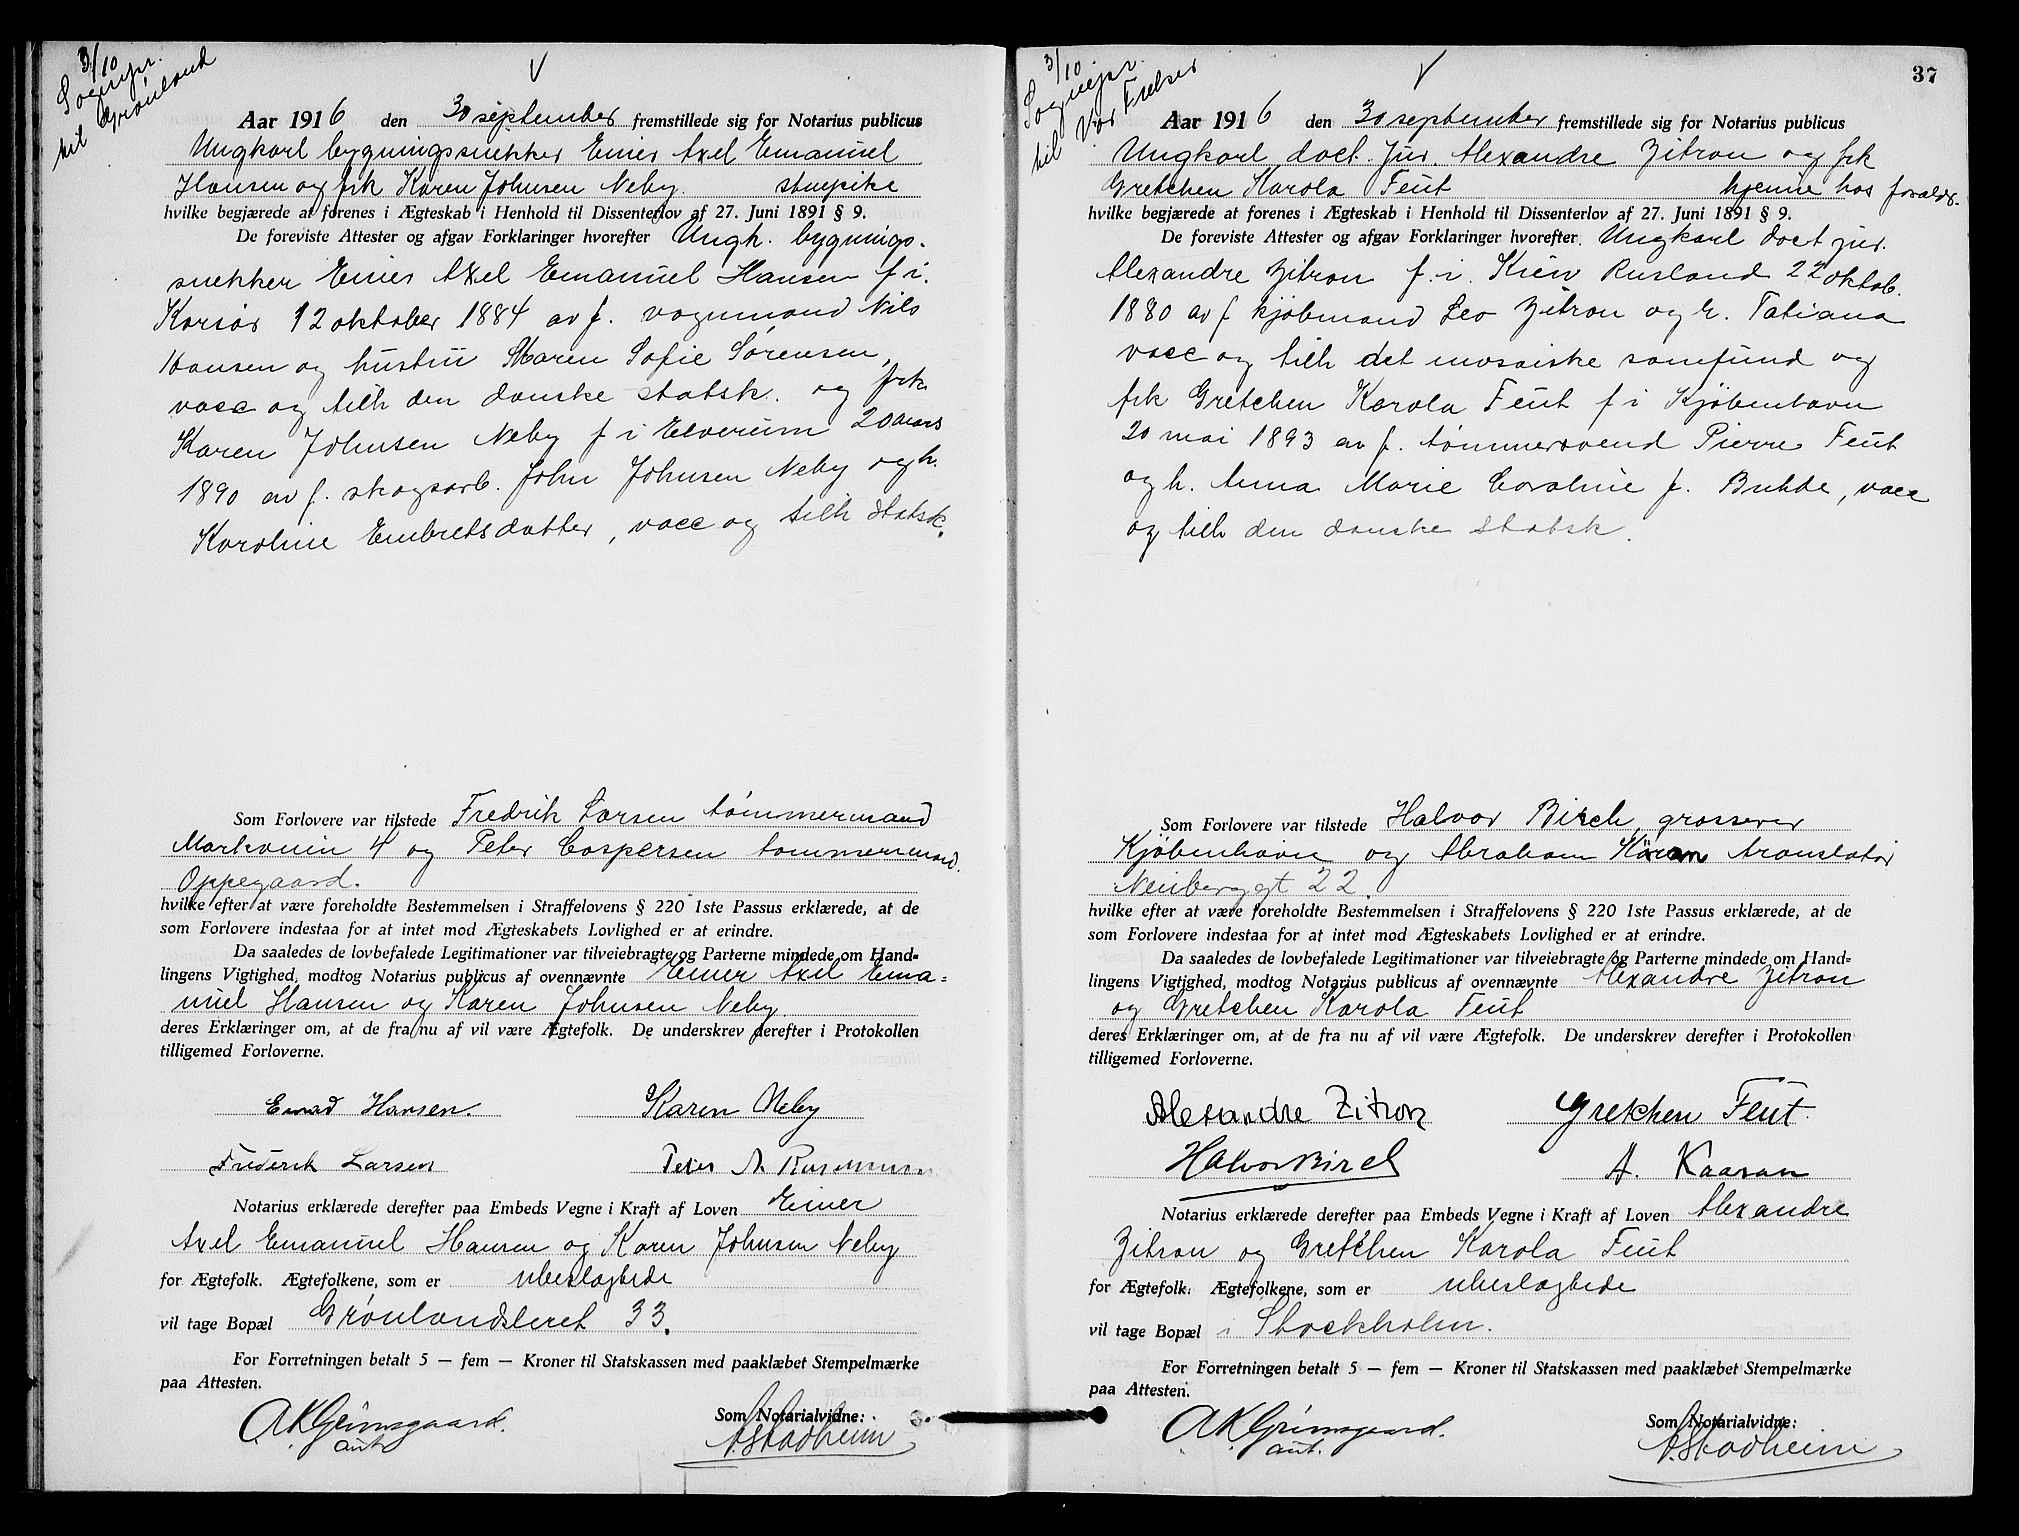 3/10
Sognepr.
til Grönland
Aar 1916 den 30 september fremstillede sig for Notarius publicus
Ungkarl bygningssnekker Einer Axel Emanuel
Hansen og frk Karen Johnsen Neby. stuepike
hvilke begjærede at forenes i Ægteskab i Henhold til Dissenterlov af 27. Juni 1891 § 9.
De foreviste Attester og afgav Forklaringer hvorefter Ungk. bygnings-
snekker Einer Axel Emanuel Hansen f i.
Korsör 12 oktober 1884 av f. vognmand Nils
Hansen og hustru Maren Sofie Sørensen,
vacc og tilh den danske statsk. og frk
Karen Johnsen Neby f i Elverum 20 mars
1890 av f. skogsarb. John Johnsen Neby og h.
Karoline Embretsdatter, vacc og tilh statsk.
Som Forlovere var tilstede Fredrik Larsen tømmermand
Markveien 4 og Peter Caspersen tømmermand.
Oppegaard.
hvilke efter at være foreholdte Bestemmelsen i Straffelovens § 220 1ste Passus erklærede, at de
som Forlovere indestaa for at intet mod Ægteskabets Lovlighed er at erindre.
Da saaledes de lovbefalede Legitimationer var tilveiebragte og Parterne mindede om Hand-
lingens Vigtighed, modtog Notarius publicus af ovennævnte Einer Axel Ema-
nuel Hansen og Karen Johnsen Neby
deres Erklæringer om, at de fra nu af vil være Ægtefolk. De underskrev derefter i Protokollen
tilligemed Forloverne.
Hansen. Karen Neby
Frederik Larsen Peter
Notarius erklærede derefter paa Embeds Vegne i Kraft af Loven Einer
Axel Emanuel Hansen og Karen Johnsen Neby
for Ægtefolk. Ægtefolkene, som er ubeslægtede
vil tage Bopæl Grönlandsleret 33.
For Forretningen betalt 5 — fem — Kroner til Statskassen med paaklæbet Stempelmærke
paa Attesten.
A K Grimsgaard. Som Notarialvidne:
aut.
37
3/10.
Sognepr.
til Vor Frelser
Aar 1916 den 30 september fremstillede sig for Notarius publicus
Ungkarl doct. jur. Alexandre Zitron og frk
Gretchen Karola Feut hjemme hos forældr.
hvilke begjærede at forenes i Ægteskab i Henhold til Dissenterlov af 27. Juni 1891 § 9.
De foreviste Attester og afgav Forklaringer hvorefter Ungkarl doct jur.
Alexandre Zitron f. i. Kiew Rusland 22 oktob.
1880 av f kjöbmand Leo Zitron og h. Tatiana
vacc og tilh det mosaiske samfund og
frk Gretchen Karola Feut f i Kjöbenhavn
20 mai 1893 av f. tömmersvend Pierre Feut
og h. Anna Marie Caroline f. Buhde, vacc
og tilh den danske statsk.
Som Forlovere var tilstede Halvor Birch, grosserer
Kjöbenhavn og Abraham Kåran translatör
Neuberggt 22.
hvilke efter at være foreholdte Bestemmelsen i Straffelovens § 220 1ste Passus erklærede, at de
som Forlovere indestaa for at intet mod Ægteskabets Lovlighed er at erindre.
Da saaledes de lovbefalede Legitimationer var tilveiebragte og Parterne mindede om Hand-
lingens Vigtighed, modtog Notarius publicus af ovennævnte Alexandre Zitron
og Gretchen Karola Feut
deres Erklæringer om, at de fra nu af vil være Ægtefolk. De underskrev derefter i Protokollen
tilligemed Forloverne.
Alexandre Zitron Gretchen Feut.
Halvor Birch A. Kaaran
Notarius erklærede derefter paa Embeds Vegne i Kraft af Loven Alexandre
Zitron og Gretchen Karola Feut
for Ægtefolk. Ægtefolkene, som er ubeslægtede
vil tage Bopæl i Stockholm.
For Forretningen betalt 5 — fem — Kroner til Statskassen med paaklæbet Stempelmærke
paa Attesten.
A K Grimsgaard. Som Notarialvidne:
aut.